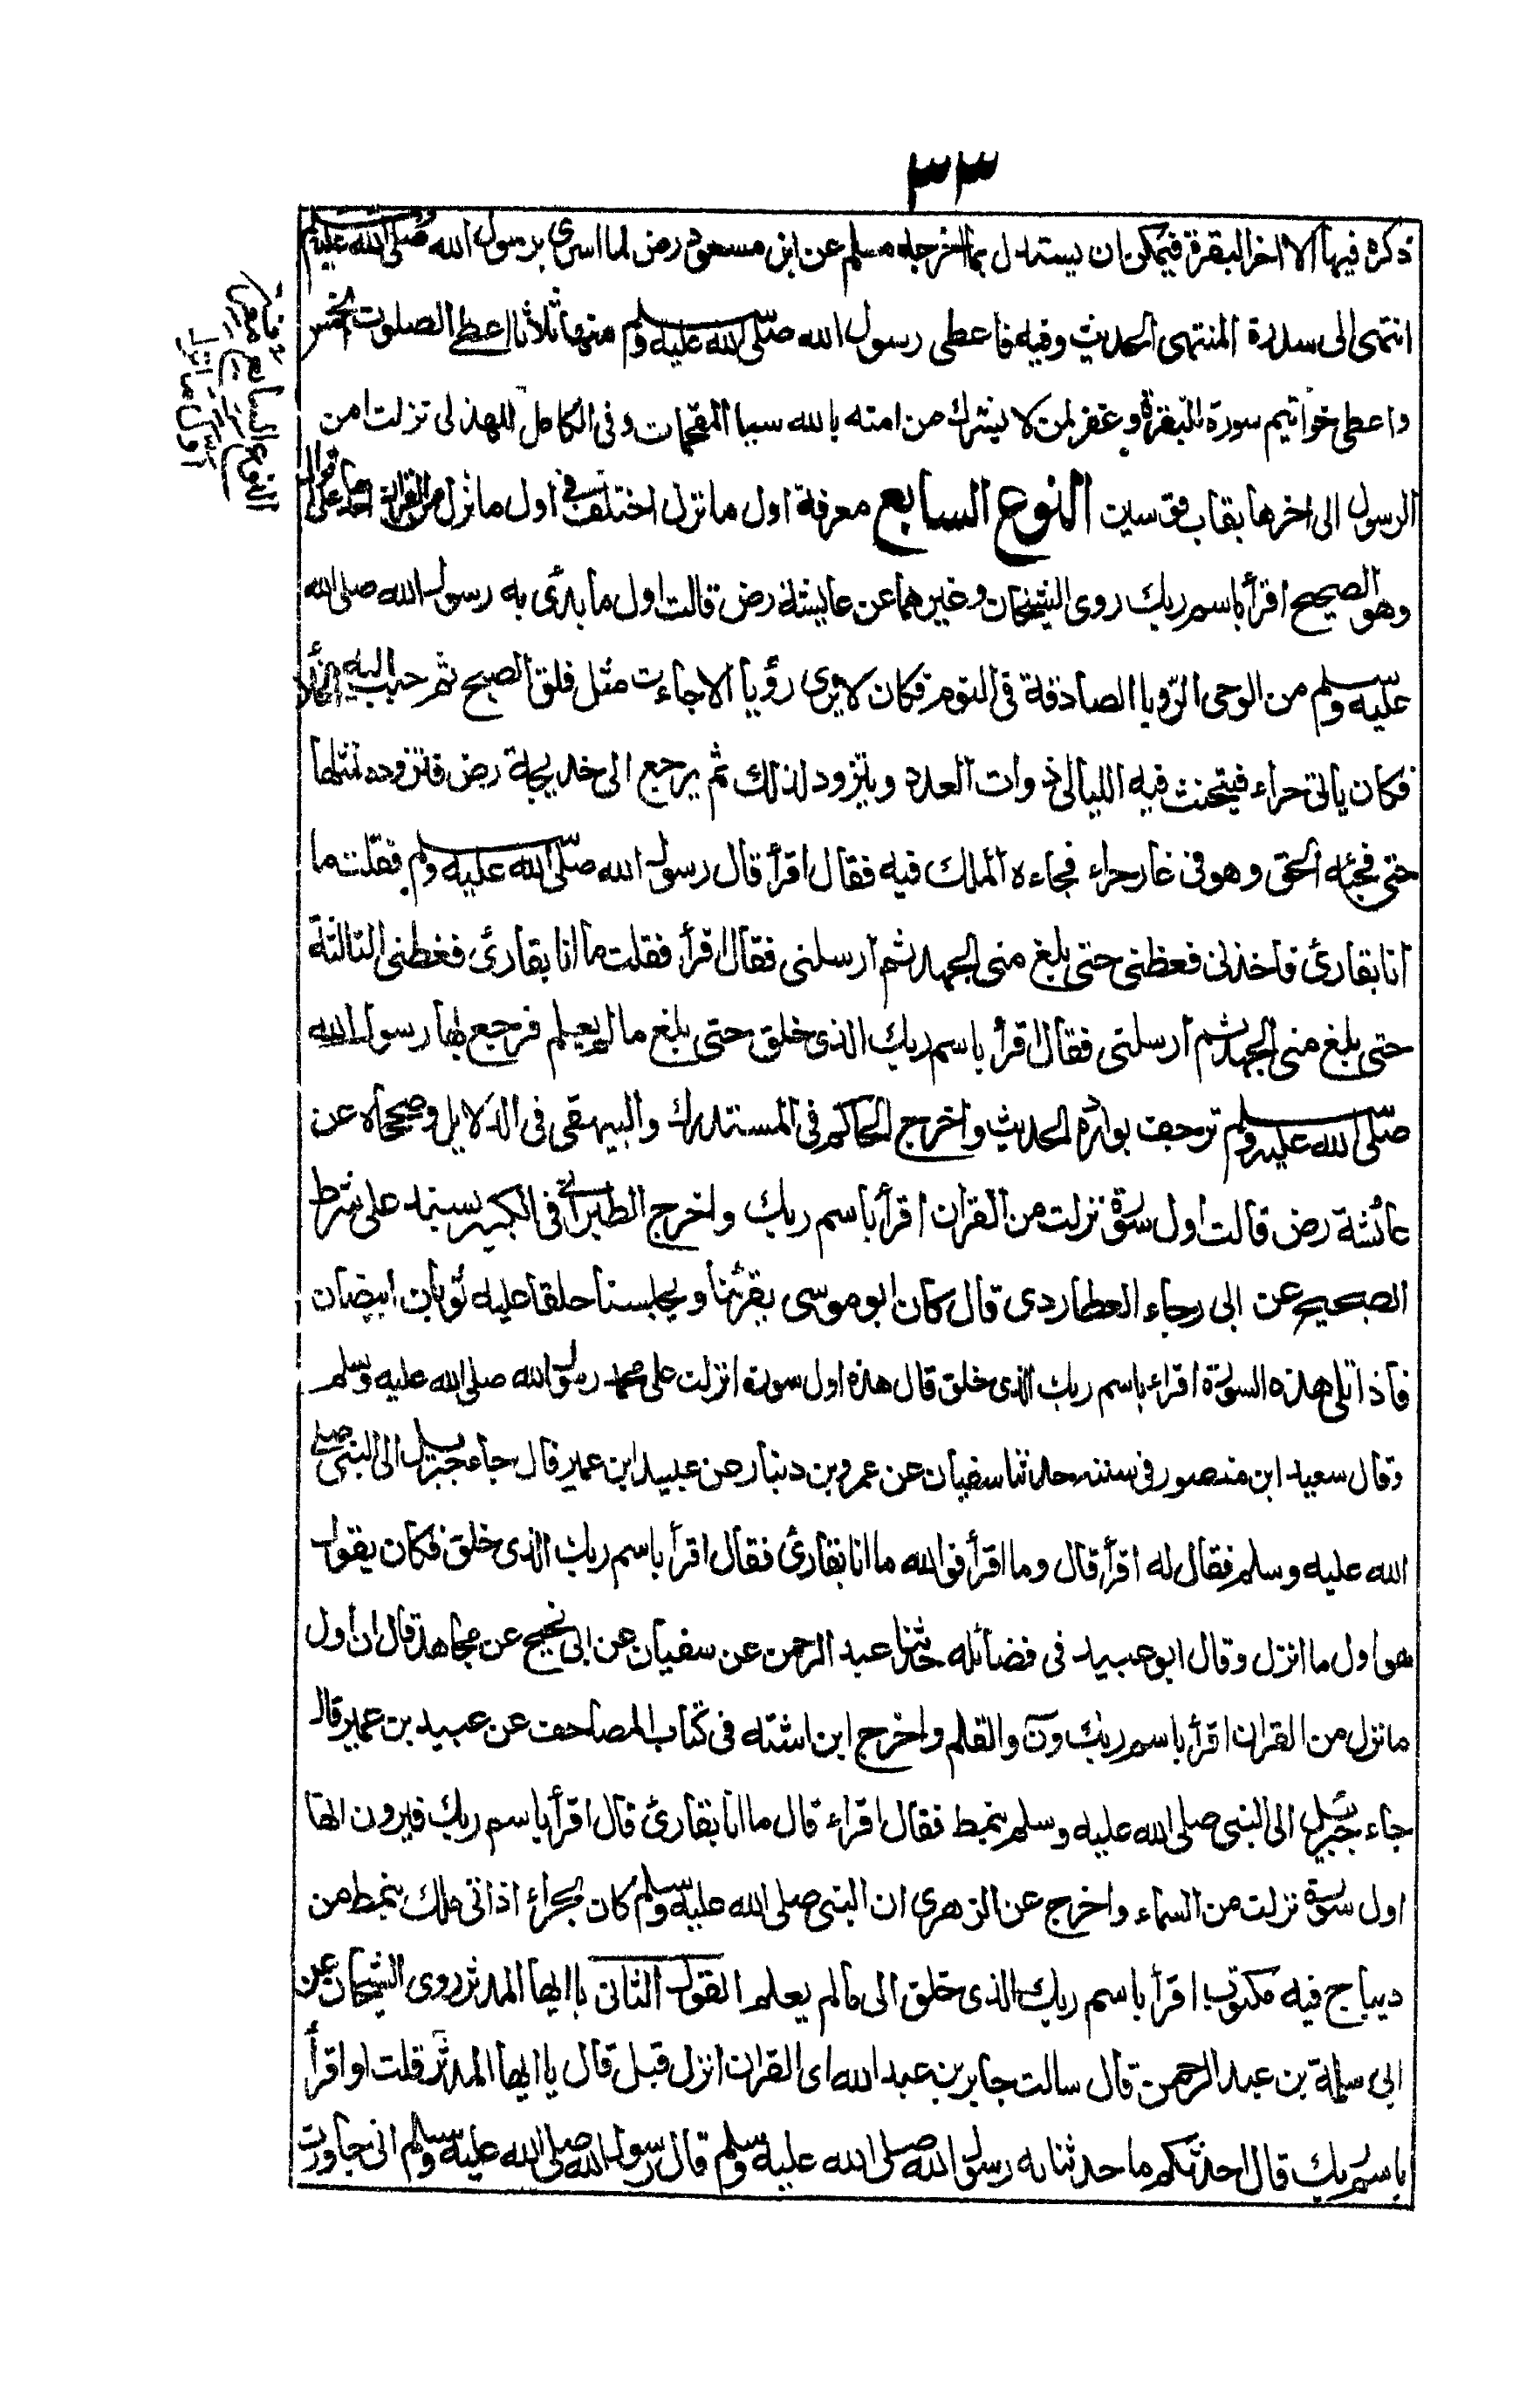 ٣٣
ذكره فيها الا اخر البقرة فيمكن ان يستدل بما اخرجه مسلم عن ابن مسعود رض لما اسرى برسول الله صلى الله عليه وسلم
انتهى الى سدرة المنتهى الحديث وفيه فاعطى رسول الله صلى الله عليه وسلم منها ثلاثا اعطى الصلوت الخمس
واعطى خواتيم سورة البقرة وغفر لمن لا يشرك من امته بالله سيبا المقحمات وفى الكامل للهذلى نزلت امن
الرسول الى اخرها بقاب قوسين النوع السابع معرفة اول ما نزل اختلف فى اول ما نزل من القران على اقوال احدها
وهو الصحيح اقرأ باسم ربك روى الشيخان وغيرهما عن عايشة رض قالت اول ما بدئ به رسول الله صلى الله
عليه وسلم من الوحى الرؤيا الصادقة فى النوم فكان لا يرى رؤيا الا جاءت مثل فلق الصبح ثم حبب اليه الخلاء
فكان ياتى حراء فيتحنث فيه الليالى ذوات العدد ويتزود لذلك ثم يرجع الى خديجة رض فتزوده لمثلها
حتى فجئه الحق وهو فى غار حراء فجاءه الملك فيه فقال اقرأ قال رسول الله صلى الله عليه وسلم فقلت ما
انا بقارئ فاخذنى فغطنى حتى بلغ منى الجهد ثم ارسلنى فقال اقرأ فقلت ما انا بقارئ فغطنى الثالثة
حتى بلغ منى الجهد ثم ارسلنى فقال اقرأ باسم ربك الذى خلق حتى بلغ ما لم يعلم فرجع بها رسول الله
صلى الله عليه وسلم ترجف بوادره الحديث واخرج الحاكم فى المستدرك والبيهقى فى الدلايل وصححاه عن
عائشة رض قالت اول سورة نزلت من القران اقرأ باسم ربك واخرج الطبرانى فى الكبير بسند على شرط
الصحيح عن ابى رجاء العطاردى قال كان ابو موسى يقرئنا ويجلسنا حلقا عليه ثوبان ابيضان
فاذا تلى هذه السورة اقراء باسم ربك الذى خلق قال هذه اول سورة انزلت على محمد رسول الله صلى الله عليه وسلم
وقال سعيد ابن منصور فى سننه حدثنا سفيان عن عمرو بن دينار عن عبيد ابن عمير قال جاء جبريل الى النبى صلى
الله عليه وسلم فقال له اقرأ قال وما اقرأ فوالله ما انا بقارئ فقال اقرأ باسم ربك الذى خلق فكان يقول
هو اول ما انزل وقال ابو عبيد فى فضائله حدثنا عبد الرحمن عن سفيان عن ابى نجيح عن مجاهد قال ان اول
ما نزل من القران اقرأ باسم ربك ون والقلم واخرج ابن اشته فى كتاب المصاحف عن عبيد بن عمير قال
جاء جبريل الى النبى صلى الله عليه وسلم بنمط فقال اقراء قال ما انا بقارئ قال اقرأ باسم ربك فيرون انها
اول سورة نزلت من السماء واخرج عن الزهرى ان النبى صلى الله عليه وسلم كان بحراء اذ اتى ملك بنمط من
ديباج فيه مكتوب اقرأ باسم ربك الذى خلق الى ما لم يعلم القول الثانى ياايها المدثر روى الشيخان عن
ابى سلمة بن عبد الرحمن قال سالت جابر بن عبد الله اى القران انزل قبل قال يا ايها المدثر قلت او اقرأ
باسم ربك قال احدثكم ما حدثنا به رسول الله صلى الله عليه وسلم قال رسول الله صلى الله عليه وسلم انى جاورت
النوع السابع
اول ما نزل